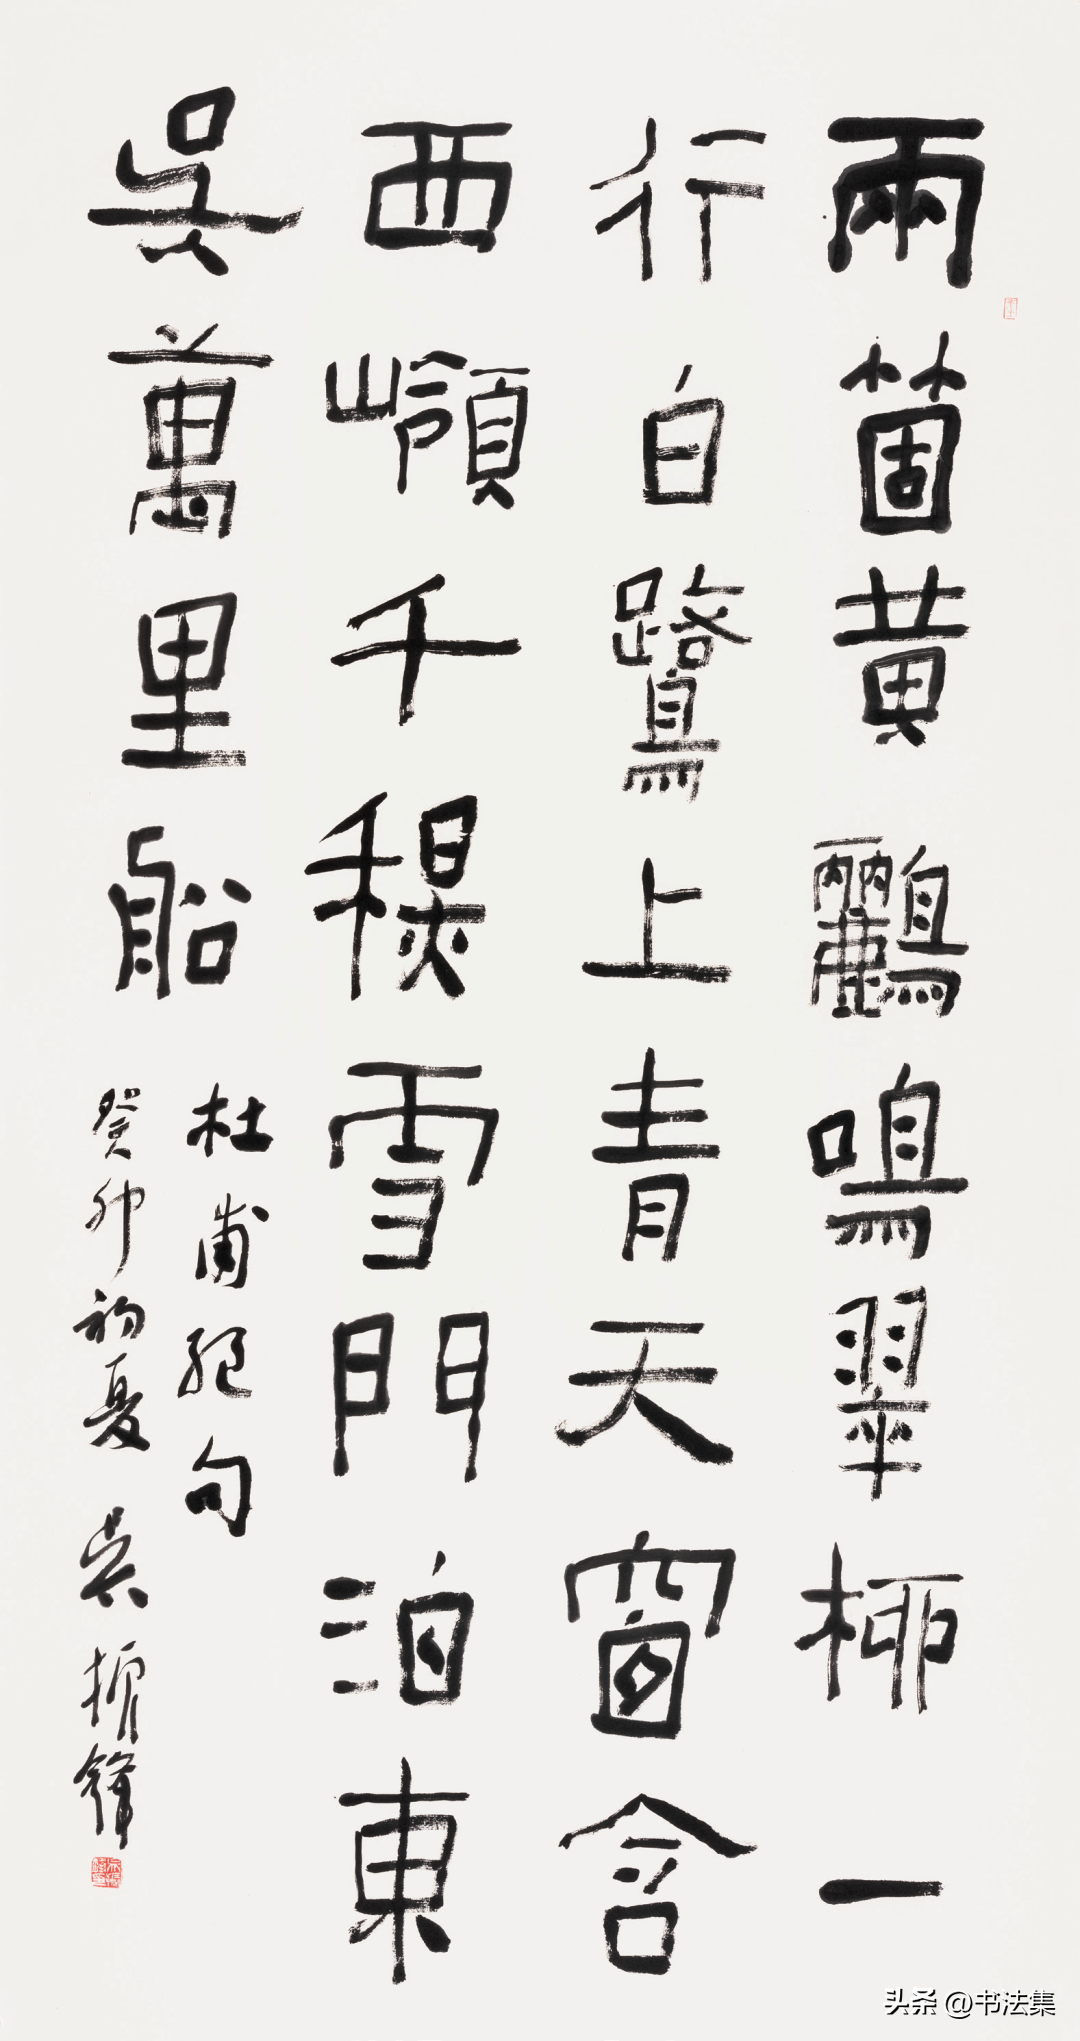 兩箇黄鸝鳴翠柳一
行白鷺上青天窗含
西嶺千穐雪門泊東
吳萬里船
杜甫絕句
癸卯初夏 吴振鋒
头条 @书法集